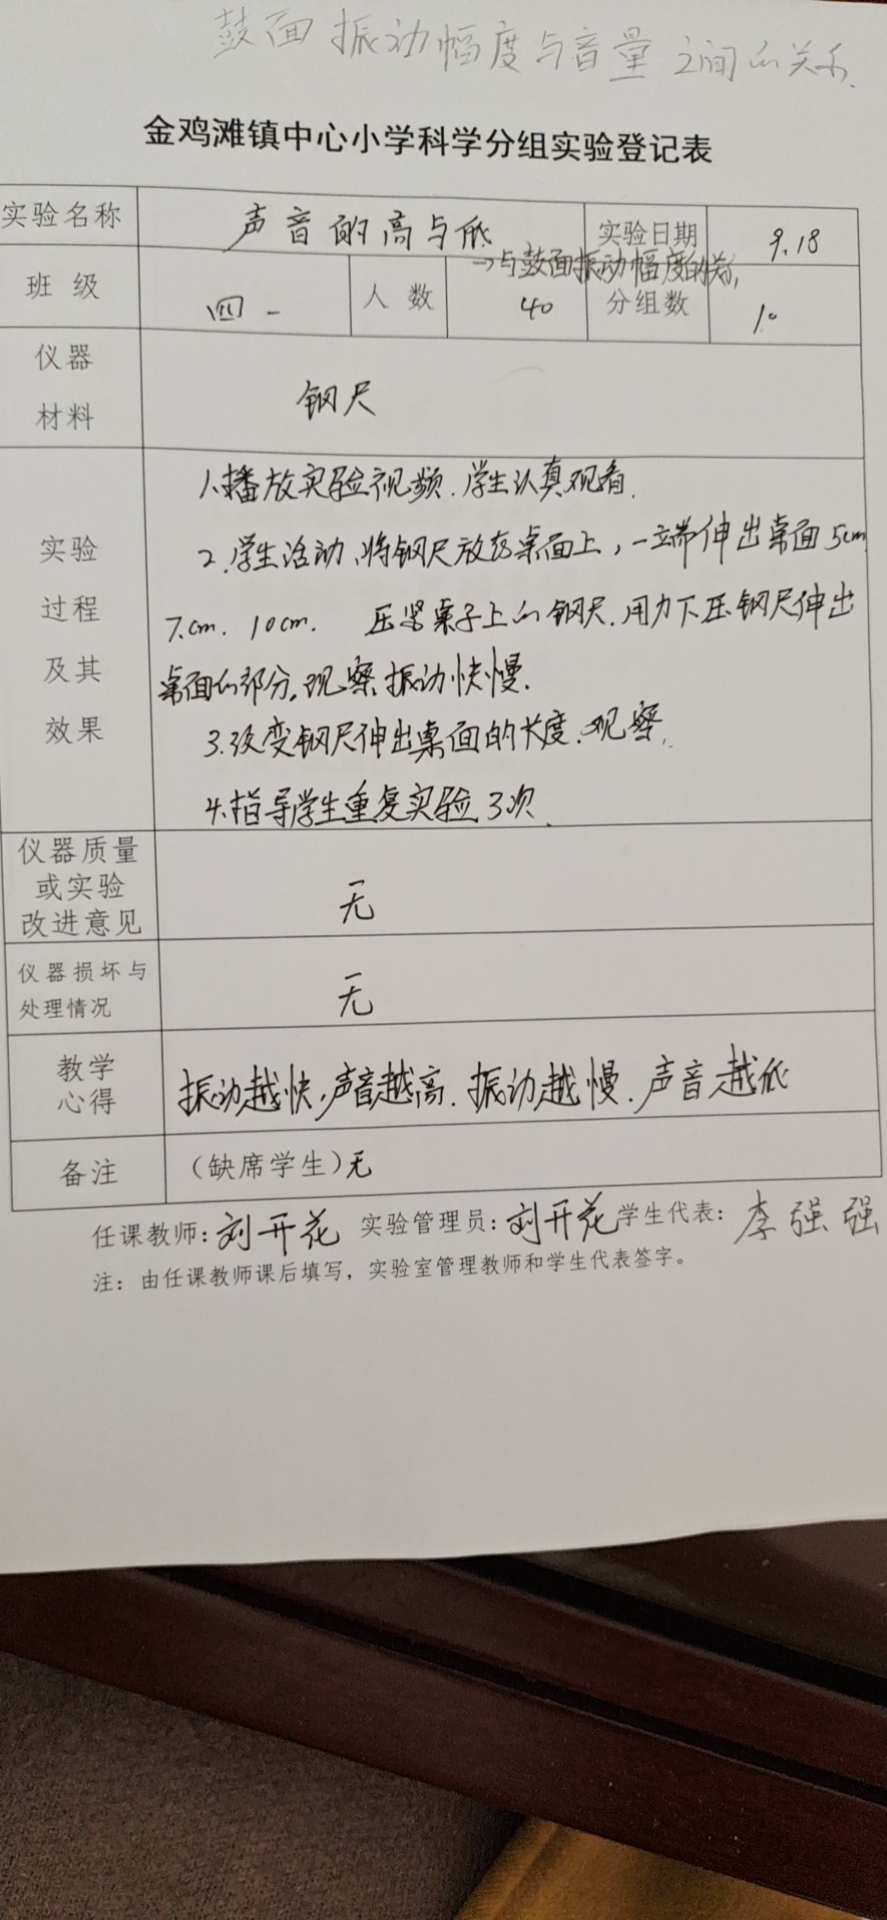 鼓面振动幅度与音量之间的关系.
金鸡滩镇中心小学科学分组实验登记表
实验名称 声音的高与低 实验日期 9.18
→与鼓面振动幅度的关系,
班 级 四一 人 数 40 分组数 10
仪器
材料
钢尺
实验
过程
及其
效果
1.播放实验视频.学生认真观看.
2.学生活动、将钢尺放在桌面上,一端伸出桌面5cm
7.cm. 10cm. 压紧桌子上的钢尺.用力下压钢尺伸出
桌面的部分.观察振动快慢.
3.改变钢尺伸出桌面的长度.观察.
4.指导学生重复实验3次.
仪器质量
或实验
改进意见
无
仪器损坏与
处理情况
无
教学
心得
振动越快,声音越高.振动越慢.声音越低
备注 (缺席学生)无
任课教师:刘开花 实验管理员:刘开花 学生代表:李强强
注:由任课教师课后填写,实验室管理教师和学生代表签字。